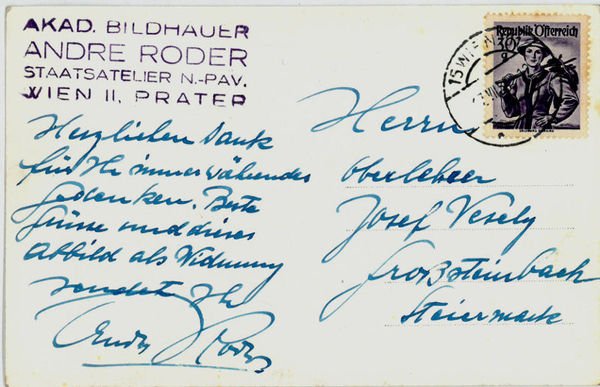 AKAD. BILDHAUER
ANDRE RODER
STAATSATELIER N.-PAV.
WIEN II. PRATER
Herzlichen Dank
für Ihr immerwährendes
Gedenken. Beste
Grüsse und dieses
Abbild als Widmung
sendet Ihr
Andre Roder
Herrn
Oberlehrer
Josef Vesely
Großsteinbach
Steiermark
Republik Österreich
30
g
15 WIEN